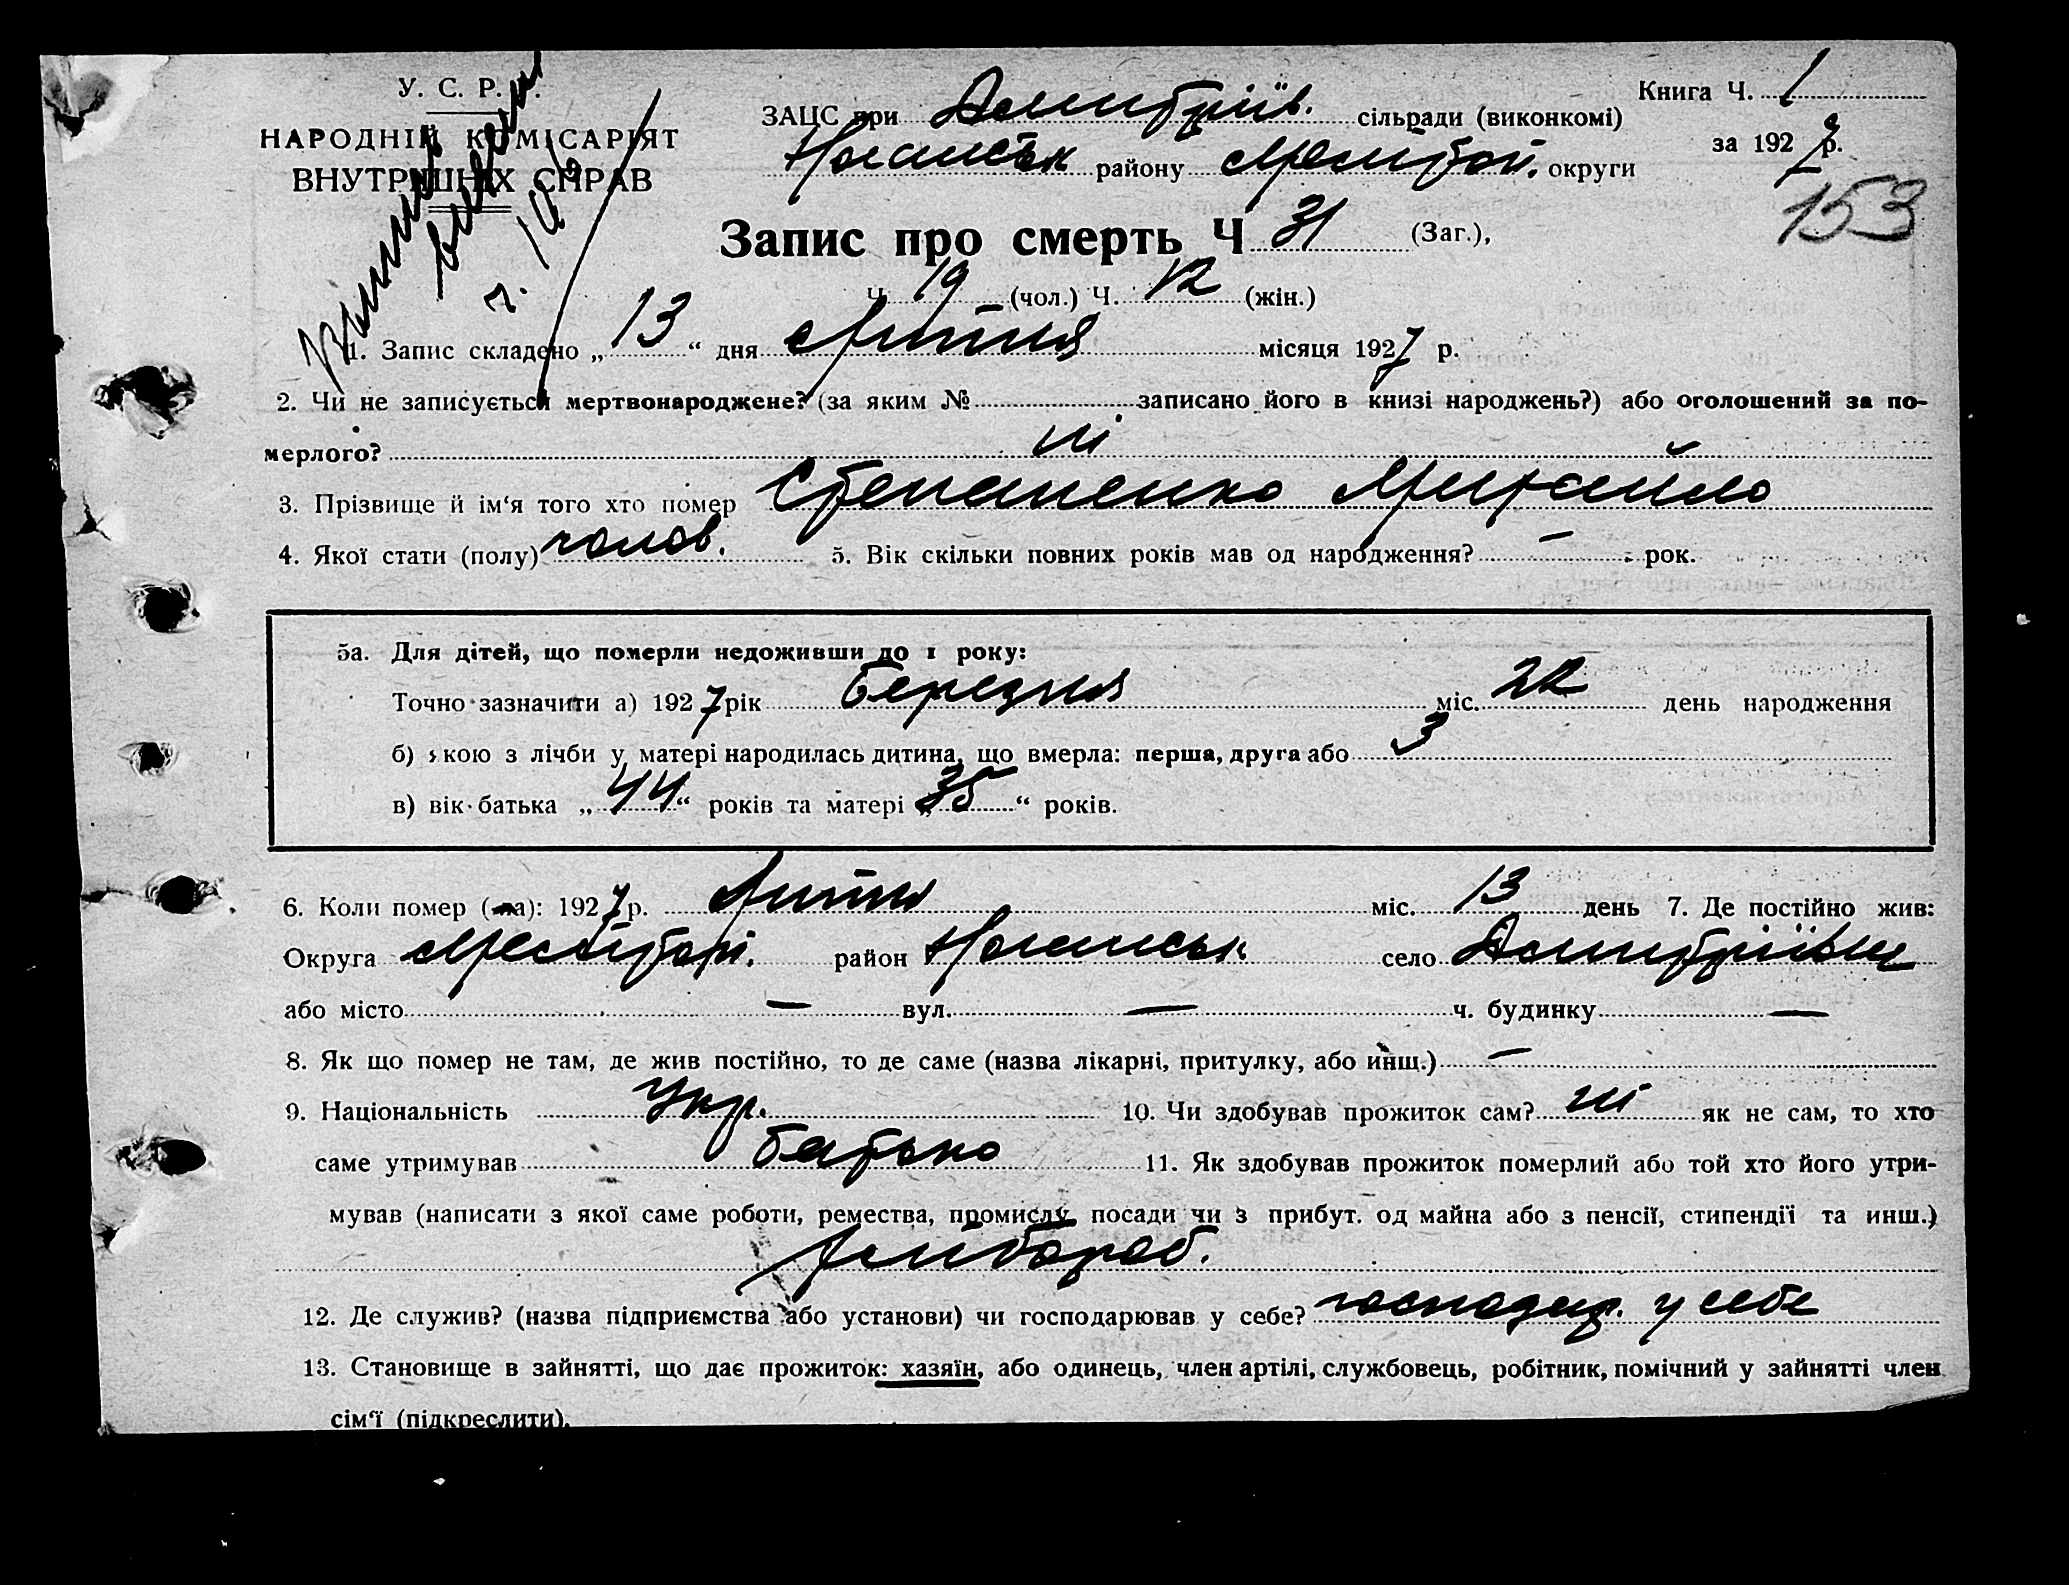 У. С. Р. Р.
НАРОДНІЙ КОМІСАРІЯТ
ВНУТРІШНІХ СПРАВ
Книга Ч. 1
за 1927 р.
153
ЗАЦС при Дмитріїв. сільради (виконкомі)
району округи
Запис про смерть Ч 31 (Заг.),
Ч 19 (чол.) Ч. 12 (жін.)
1. Запис складено „ 13 “ дня Липня місяця 1927 р.
2. Чи не записується мертвонароджене? (за яким № записано його в книзі народжень?) або оголошений за по-
мерлого? ні
3. Прізвище й ім‘я того хто помер Степаненко Михайло
4. Якої стати (полу) чолов. 5. Вік скільки повних років мав од народження? – рок.
5а. Для дітей, що померли недоживши до 1 року:
Точно зазначити а) 1927 рік березня міс. 22 день народження
б) якою з лічби у матері народилась дитина, що вмерла: перша, друга або 3
в) вік батька „ 44 “ років та матері „ 35 “ років.
6. Коли помер (-ла): 1927 р. Липня міс. 13 день 7. Де постійно жив:
Округа район село Дмитріївка
або місто – вул. – ч. будинку –
8. Як що помер не там, де жив постійно, то де саме (назва лікарні, притулку, або инш.) –
9. Національність Укр. 10. Чи здобував прожиток сам? ні як не сам, то хто
саме утримував батько 11. Як здобував прожиток померлий або той хто його утри-
мував (написати з якої саме роботи, ремества, промислу, посади чи з прибут. од майна або з пенсії, стипендії та инш.)
хлібороб.
12. Де служив? (назва підприємства або установи) чи господарював у себе? господар. у себе
13. Становище в зайнятті, що дає прожиток: хазяїн, або одинець, член артілі, службовець, робітник, помічний у зайнятті член
сім‘ї (підкреслити).